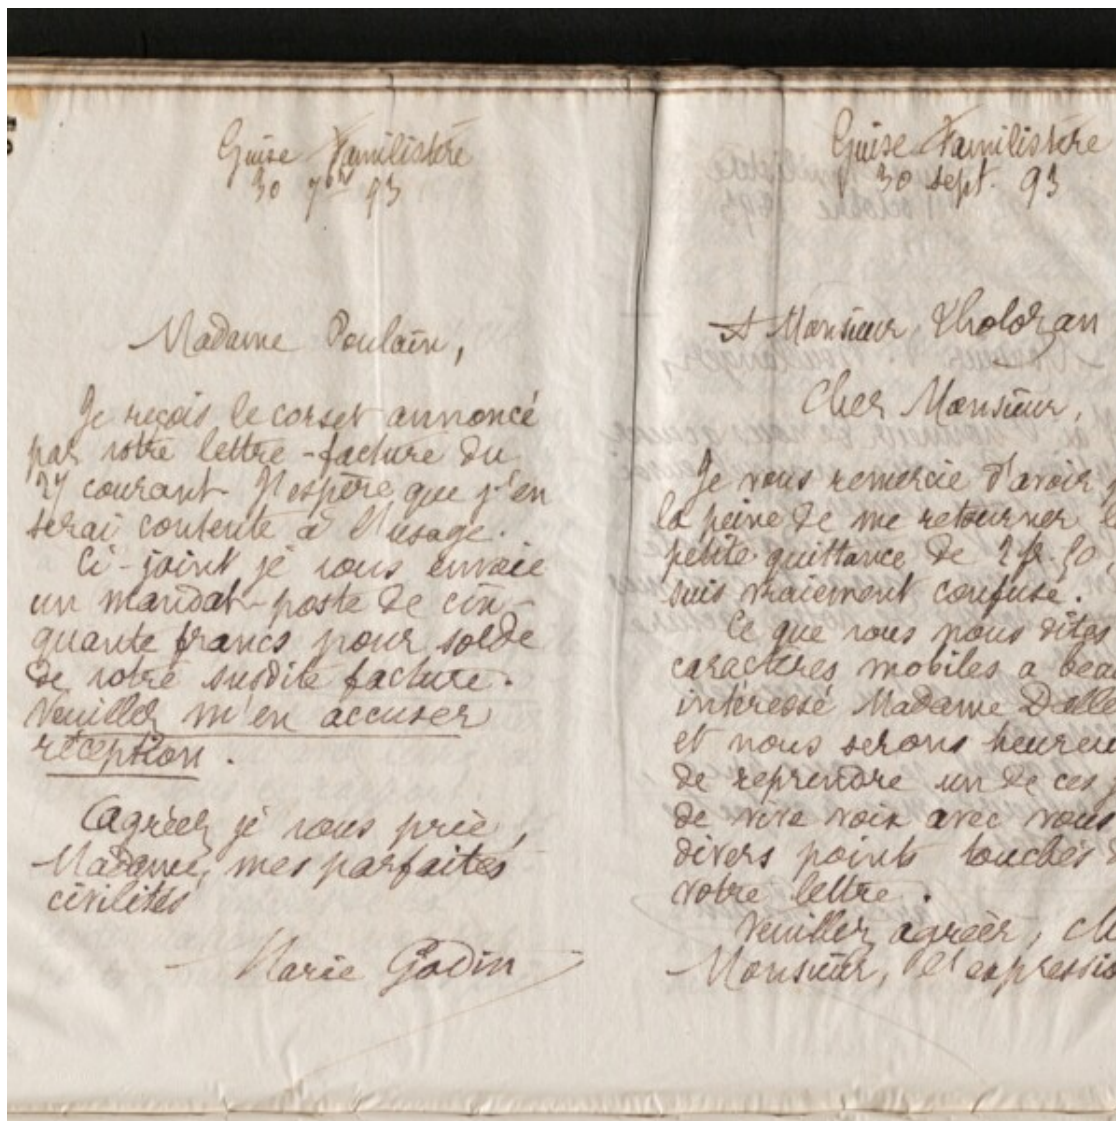 Guise Familistère
30 7bre 93
Madame Poulain,
Je reçois le corset annoncé
par votre lettre-facture du
27 courant. J'espère que j'en
serai contente à l'usage.
Ci-joint je vous envoie
un mandat-poste de cin-
quante francs pour solde
de votre susdite facture.
Veuillez m'en accuser
réception.
Agréez je vous prie,
Madame, mes parfaites
civilités
Marie Godin
Guise Familistère
30 sept. 93
A Monsieur Tholozan
Cher Monsieur,
Je vous remercie d'avoir
la peine de me retourner
petite quittance de 2 fr. 50,
suis vraiment confuse.
Ce que vous nous dites
caractères mobiles a beau
intéressé Madame Dalle
et nous serons heureu
de reprendre un de ces
de vive voix avec vous
divers points touchés
votre lettre.
Veuillez agréer, che
Monsieur, l'expressio